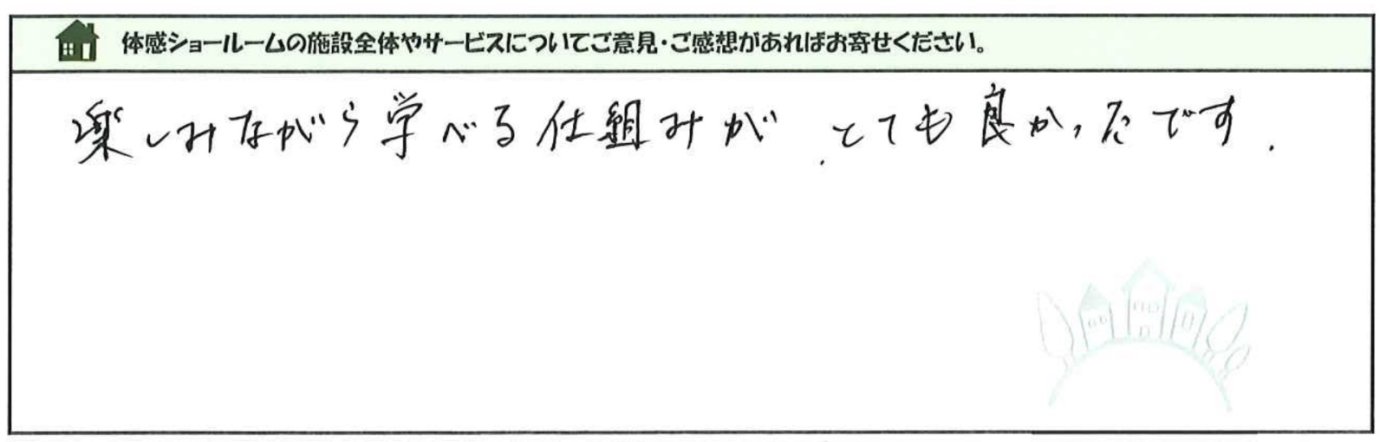 体感ショールームの施設全体やサービスについてご意見・ご感想があればお寄せください。
楽しみながら学べる仕組みが、とても良かったです.